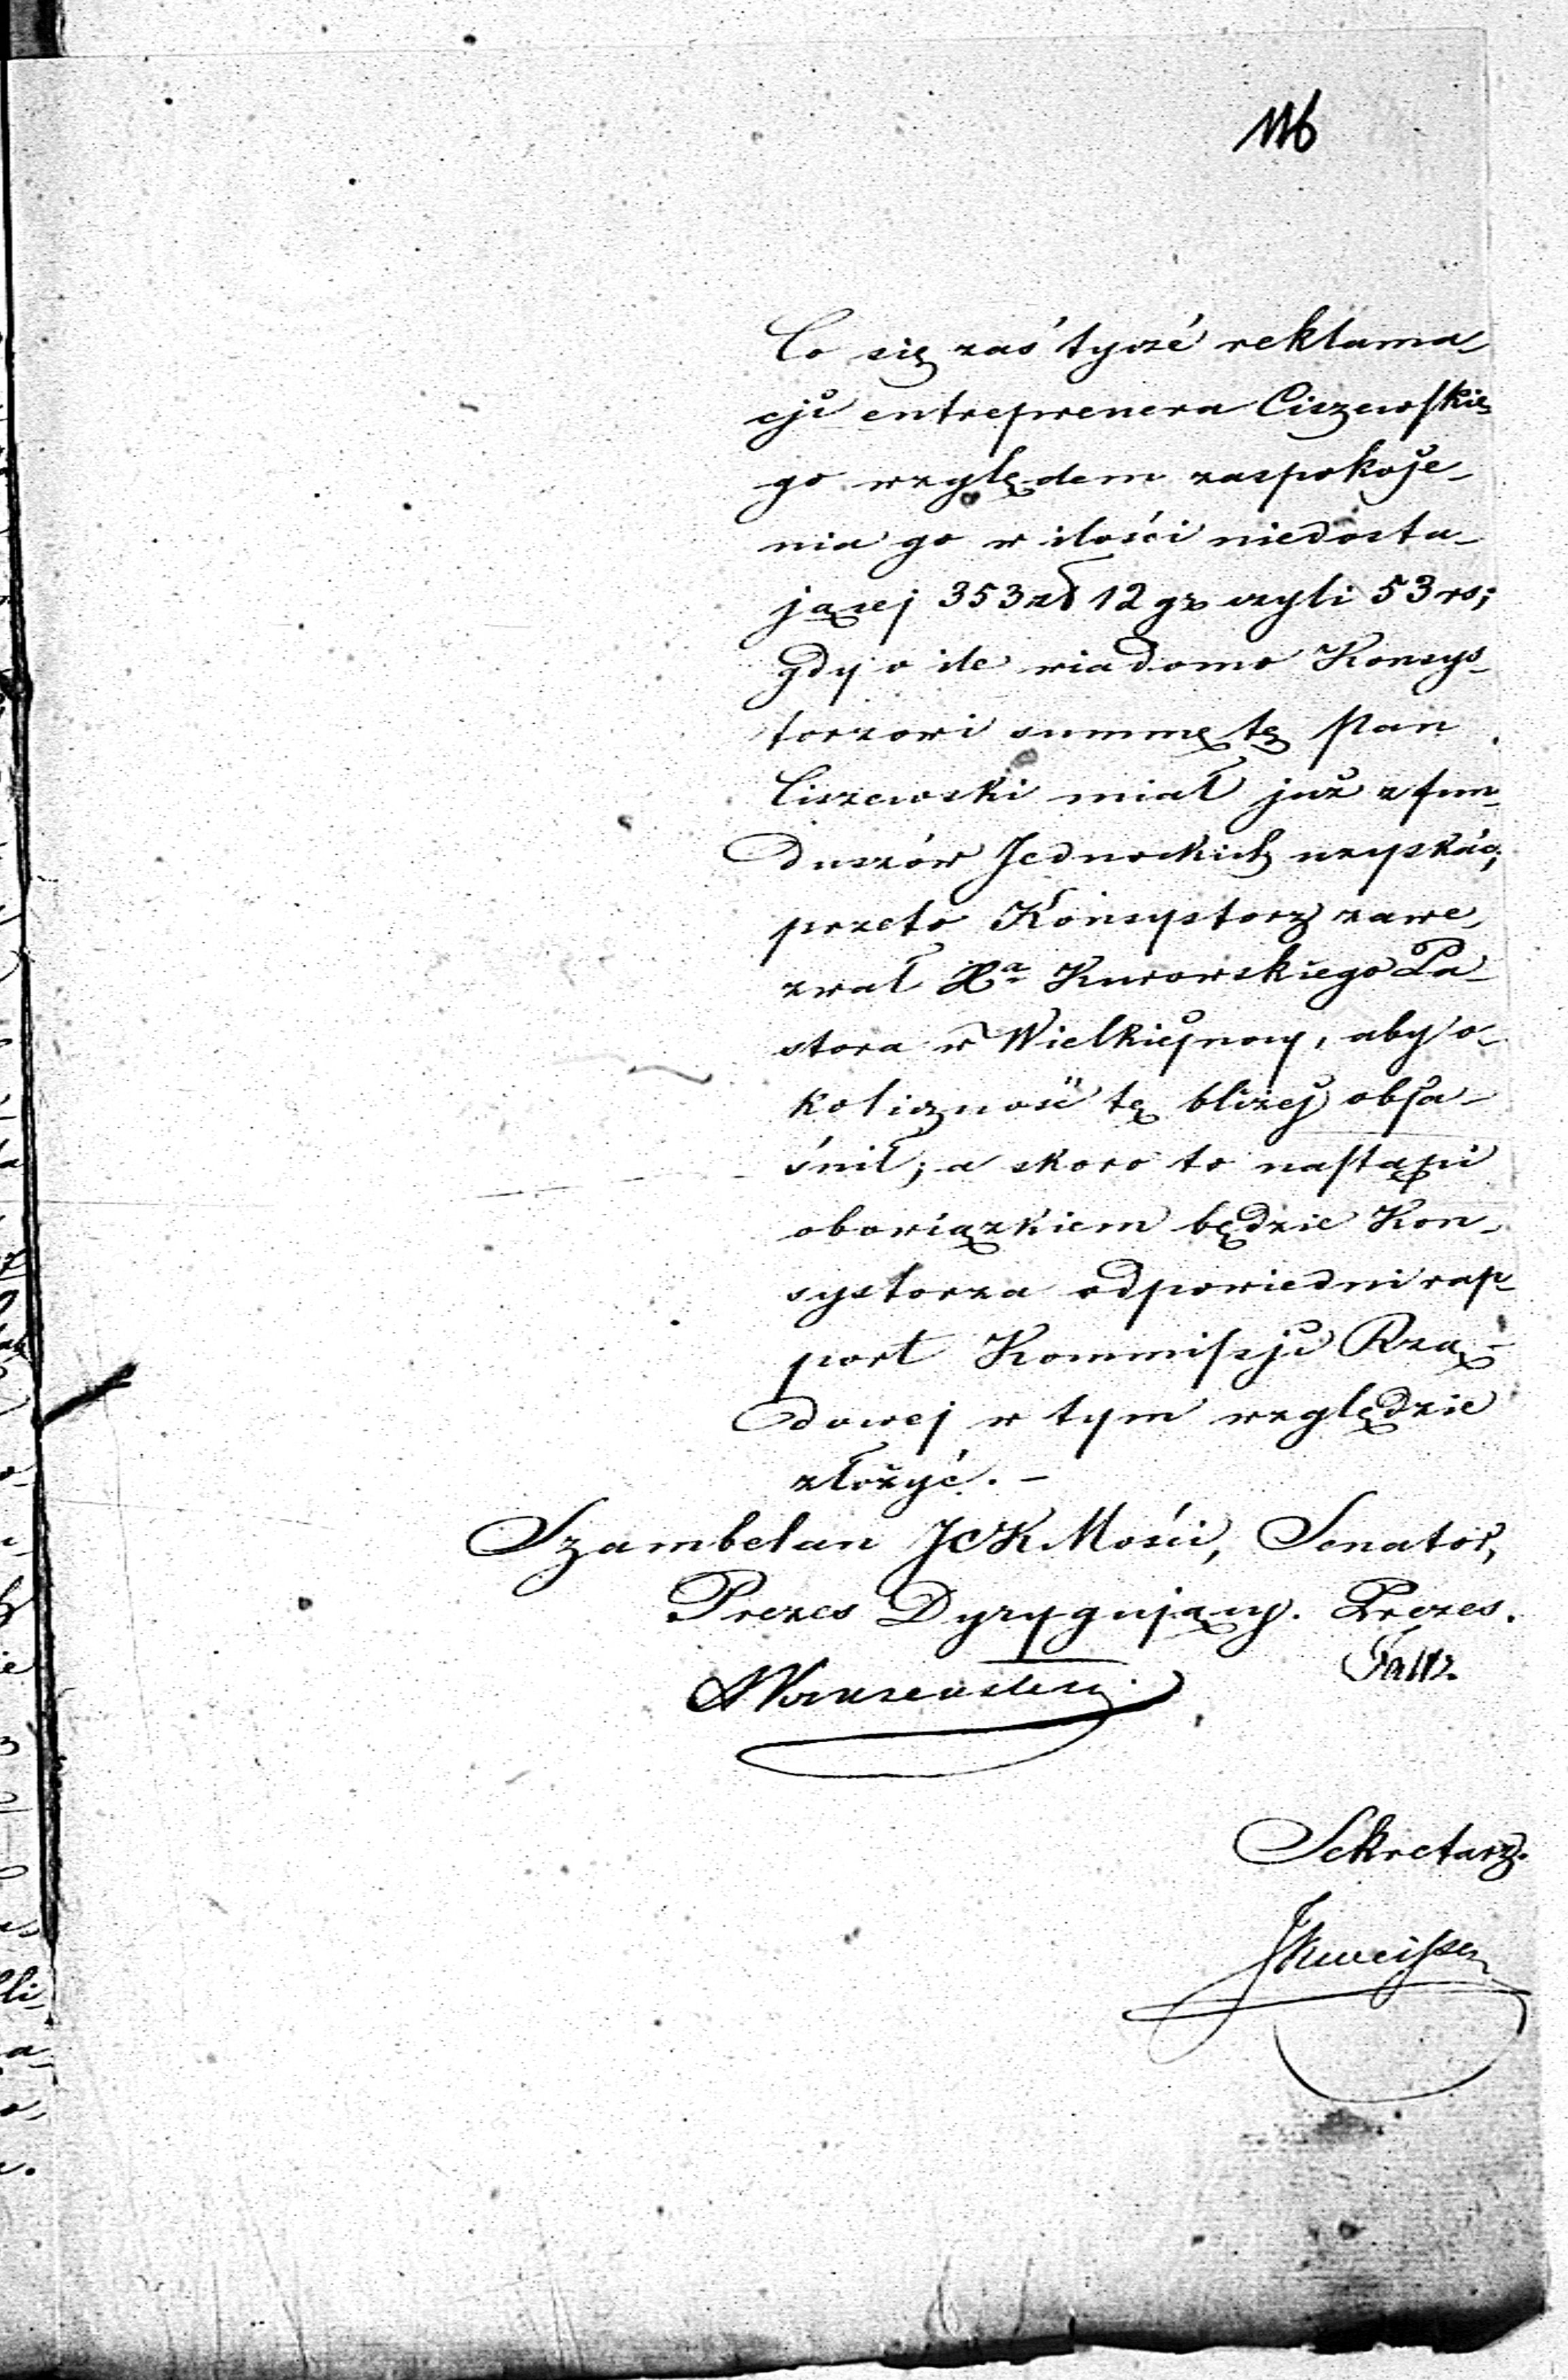 116
Co się zaś tycze reklama-
cji entreprenera Ciszewskie-
go względem zaspokoje-
nia go w ilości niedosta-
jącej 353 zł 12 gr czyli 53 rs;
gdy o ile wiadomo Konsys-
torzowi summę tę Pan
Ciszewski miał już z fun-
duszów Jednockich uzyskać;
przeto Konsystorz zawe-
zwał Xa Kurowskiego Pa-
stora w Wielkiejnocy, aby o-
koliczność tę bliżej obja-
śnił; a skoro to nastąpi
obowiązkiem będzie Kon-
systorza odpowiedni rap-
port Kommissji Rzą-
dowej w tym względzie
złożyć. -
Szambelan JCKMości, Senator,
Prezes Dyrygujący. Prezes.
Sekretarz.